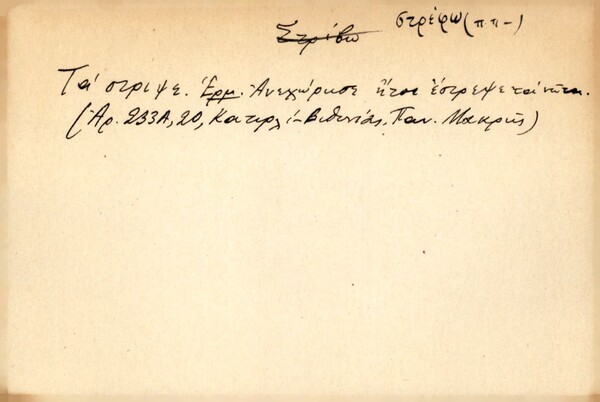 Στρίβω στρέφω (π.π-)
Τά στριψε. Ἑρμ. Ἀνεχώρησε ἤτοι ἔστρεψε τά νῶτα.
(Ἀρ. 233Α, 20, Κατιρλί-Βιθυνίας, Παν. Μακρῆς)